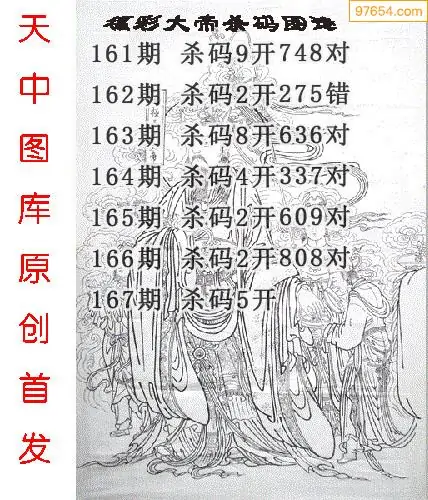 97654.com
福彩大帝杀码图迷
161期 杀码9开748对
162期 杀码2开275错
163期 杀码8开636对
164期 杀码4开337对
165期 杀码2开609对
166期 杀码2开808对
167期 杀码5开
天中图库原创首发